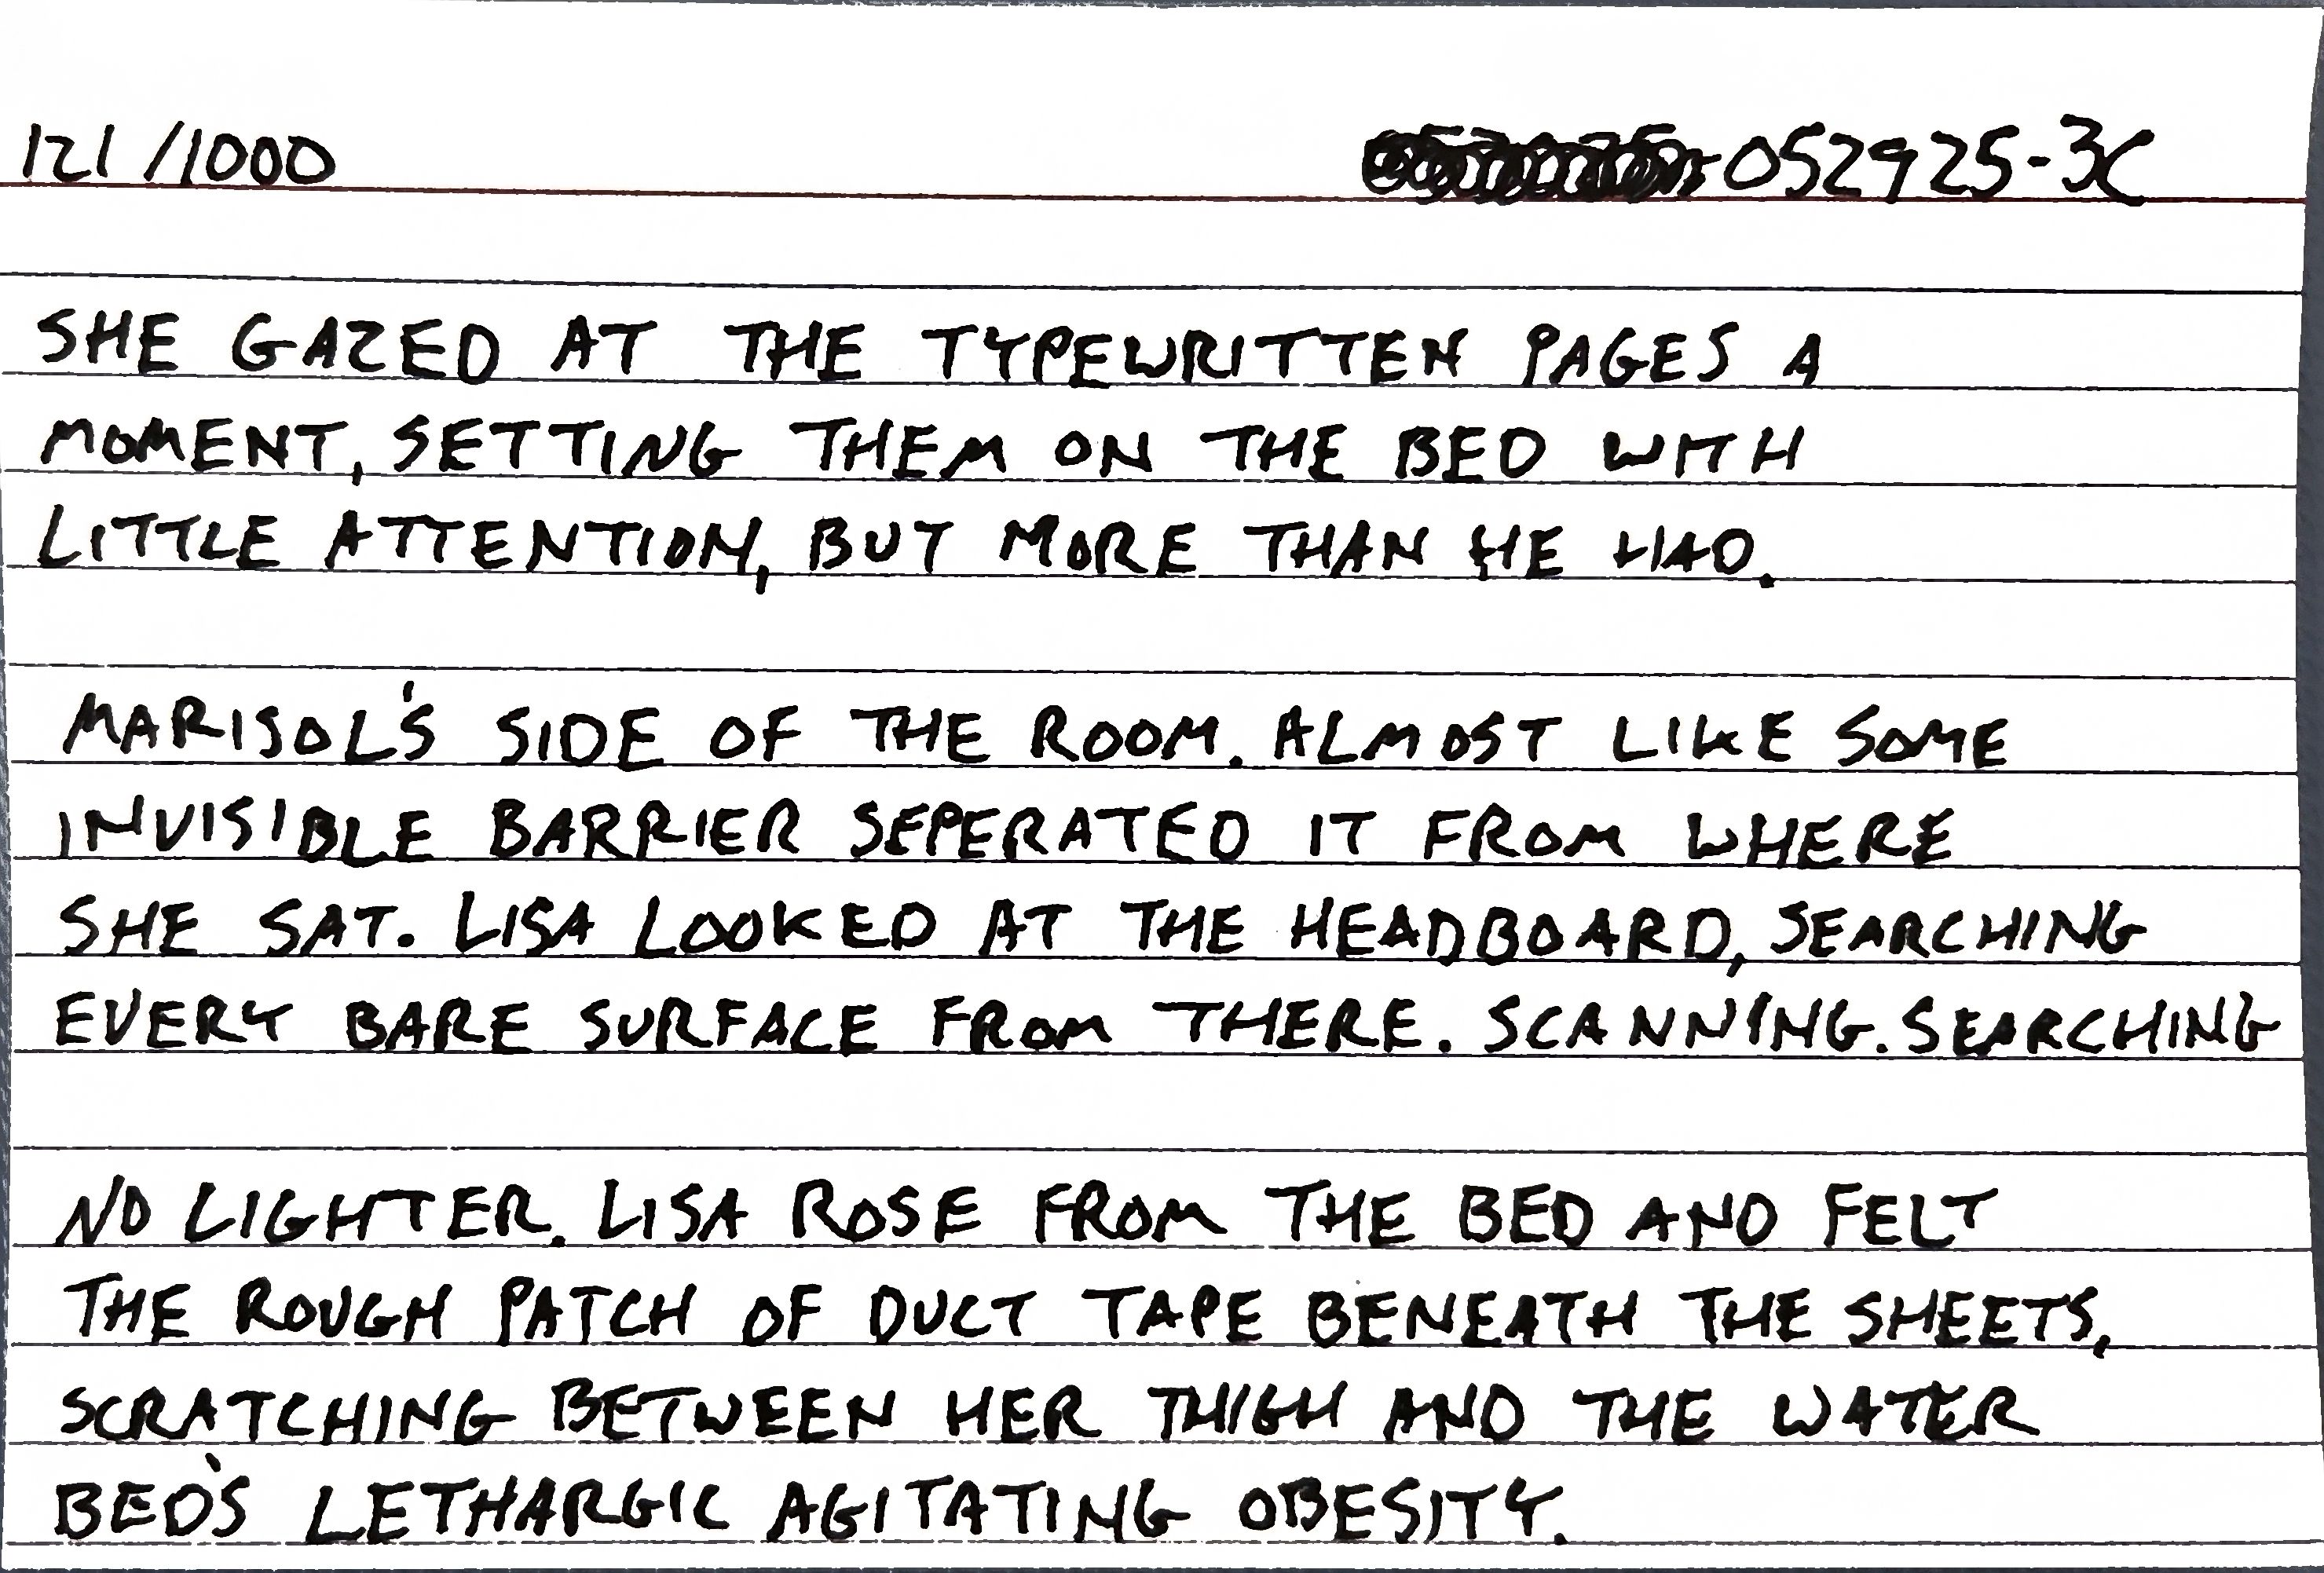 121/1000 052925-3C
SHE GAZED AT THE TYPEWRITTEN PAGES A
MOMENT, SETTING THEM ON THE BED WITH
LITTLE ATTENTION, BUT MORE THAN HE HAD.
MARISOL'S SIDE OF THE ROOM. ALMOST LIKE SOME
INVISIBLE BARRIER SEPERATED IT FROM WHERE
SHE SAT. LISA LOOKED AT THE HEADBOARD, SEARCHING
EVERY BARE SURFACE FROM THERE. SCANNING. SEARCHING
NO LIGHTER. LISA ROSE FROM THE BED AND FELT
THE ROUGH PATCH OF DUCT TAPE BENEATH THE SHEETS,
SCRATCHING BETWEEN HER THIGH AND THE WATER
BED'S LETHARGIC AGITATING OBESITY.